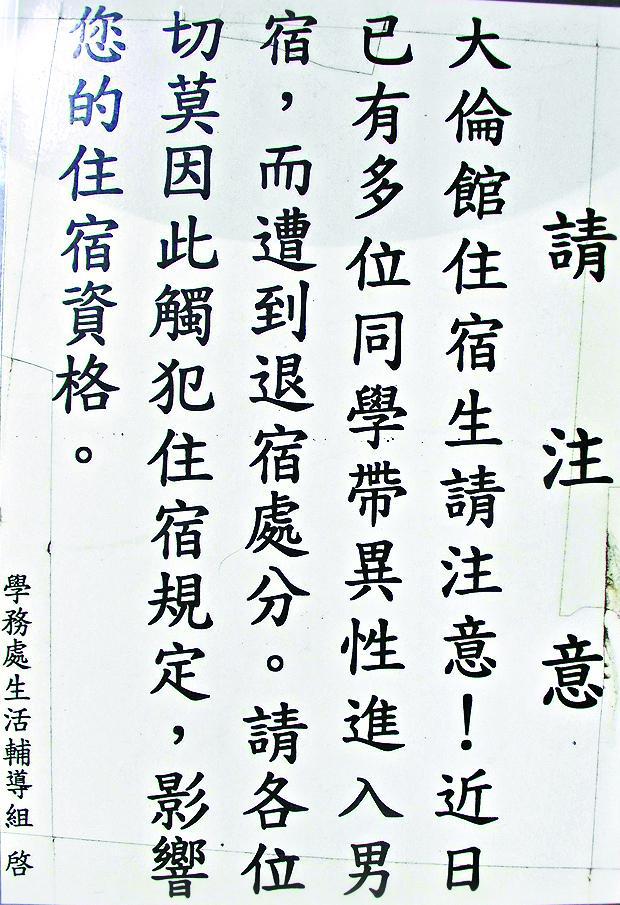 請注意
大倫館住宿生請注意！近日
已有多位同學帶異性進入男
宿，而遭到退宿處分。請各位
切莫因此觸犯住宿規定，影響
您的住宿資格。
學務處生活輔導組 啓